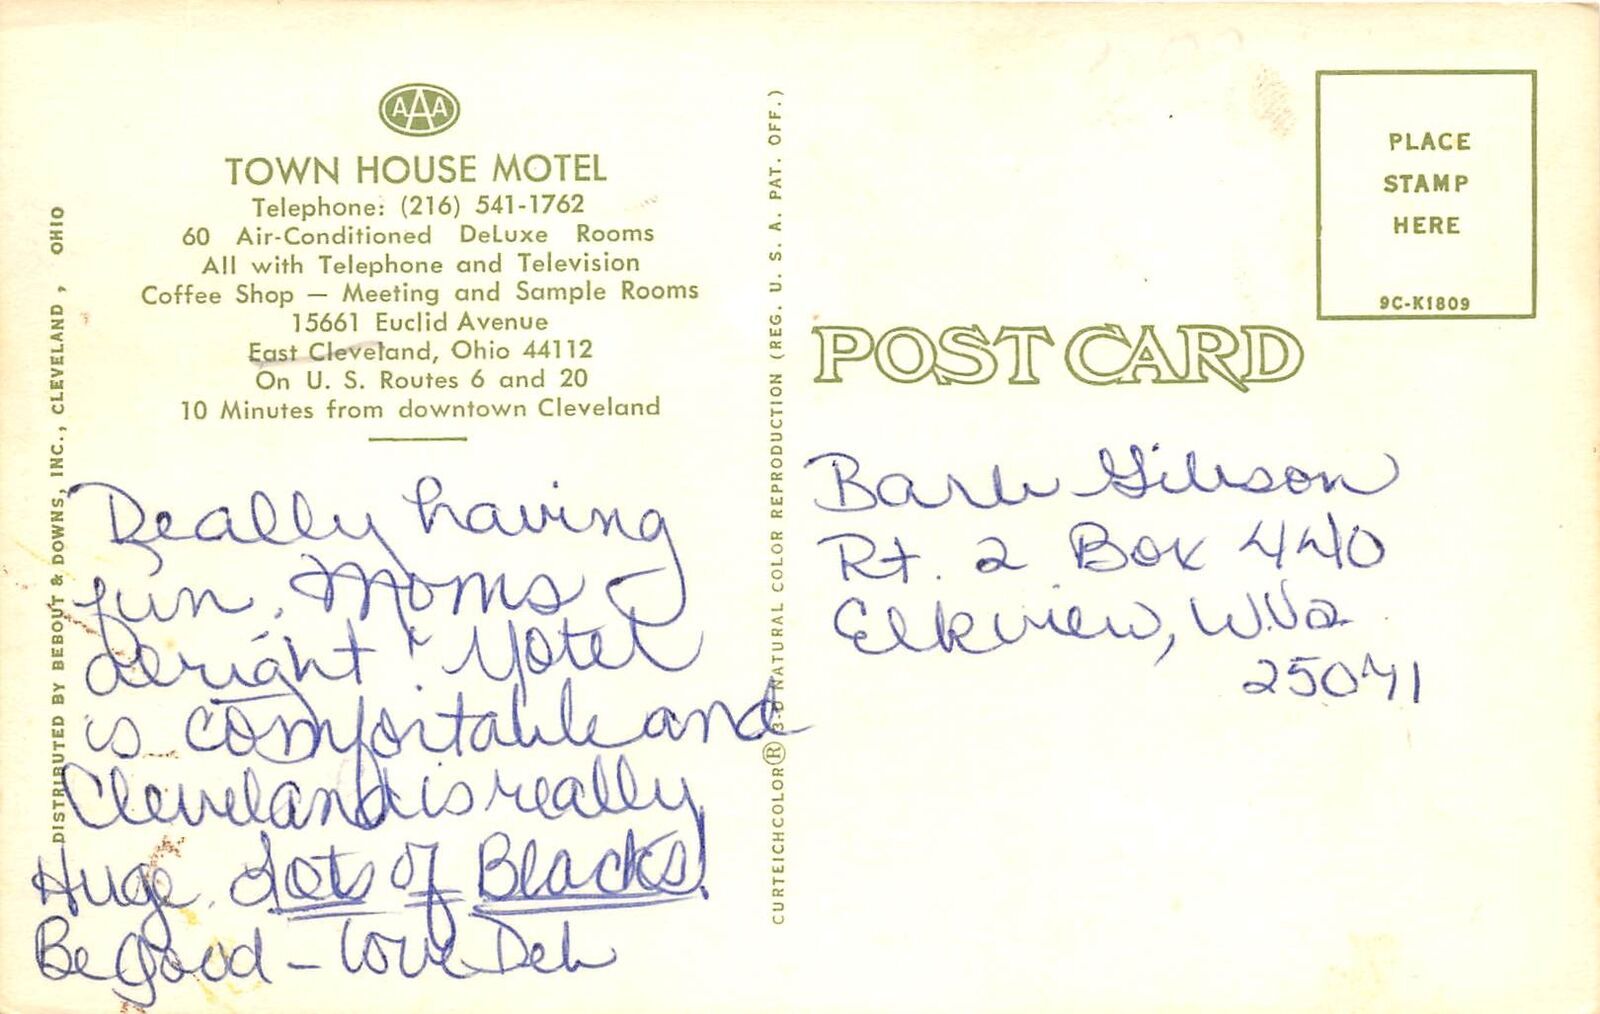 AAA
TOWN HOUSE MOTEL
Telephone: (216) 541-1762
60 Air-Conditioned DeLuxe Rooms
All with Telephone and Television
Coffee Shop — Meeting and Sample Rooms
15661 Euclid Avenue
East Cleveland, Ohio 44112
On U. S. Routes 6 and 20
10 Minutes from downtown Cleveland
Really having
fun. Moms -
alright!
is comfortable and
Cleveland is really
Huge. Lots of Blacks!
Be good - Love Deb
DISTRIBUTED BY BEBOUT & DOWNS, INC., CLEVELAND, OHIO
CURTEICHCOLOR® 3-D NATURAL COLOR REPRODUCTION (REG. U. S. A. PAT. OFF.)
PLACE
STAMP
HERE
9C-K1809
POST CARD
Barb Gibson
Rt. 2 Box 440
Elkview, W.Va
25071